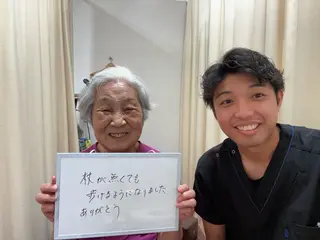 杖が無くても
歩けるようになりました
ありがとう